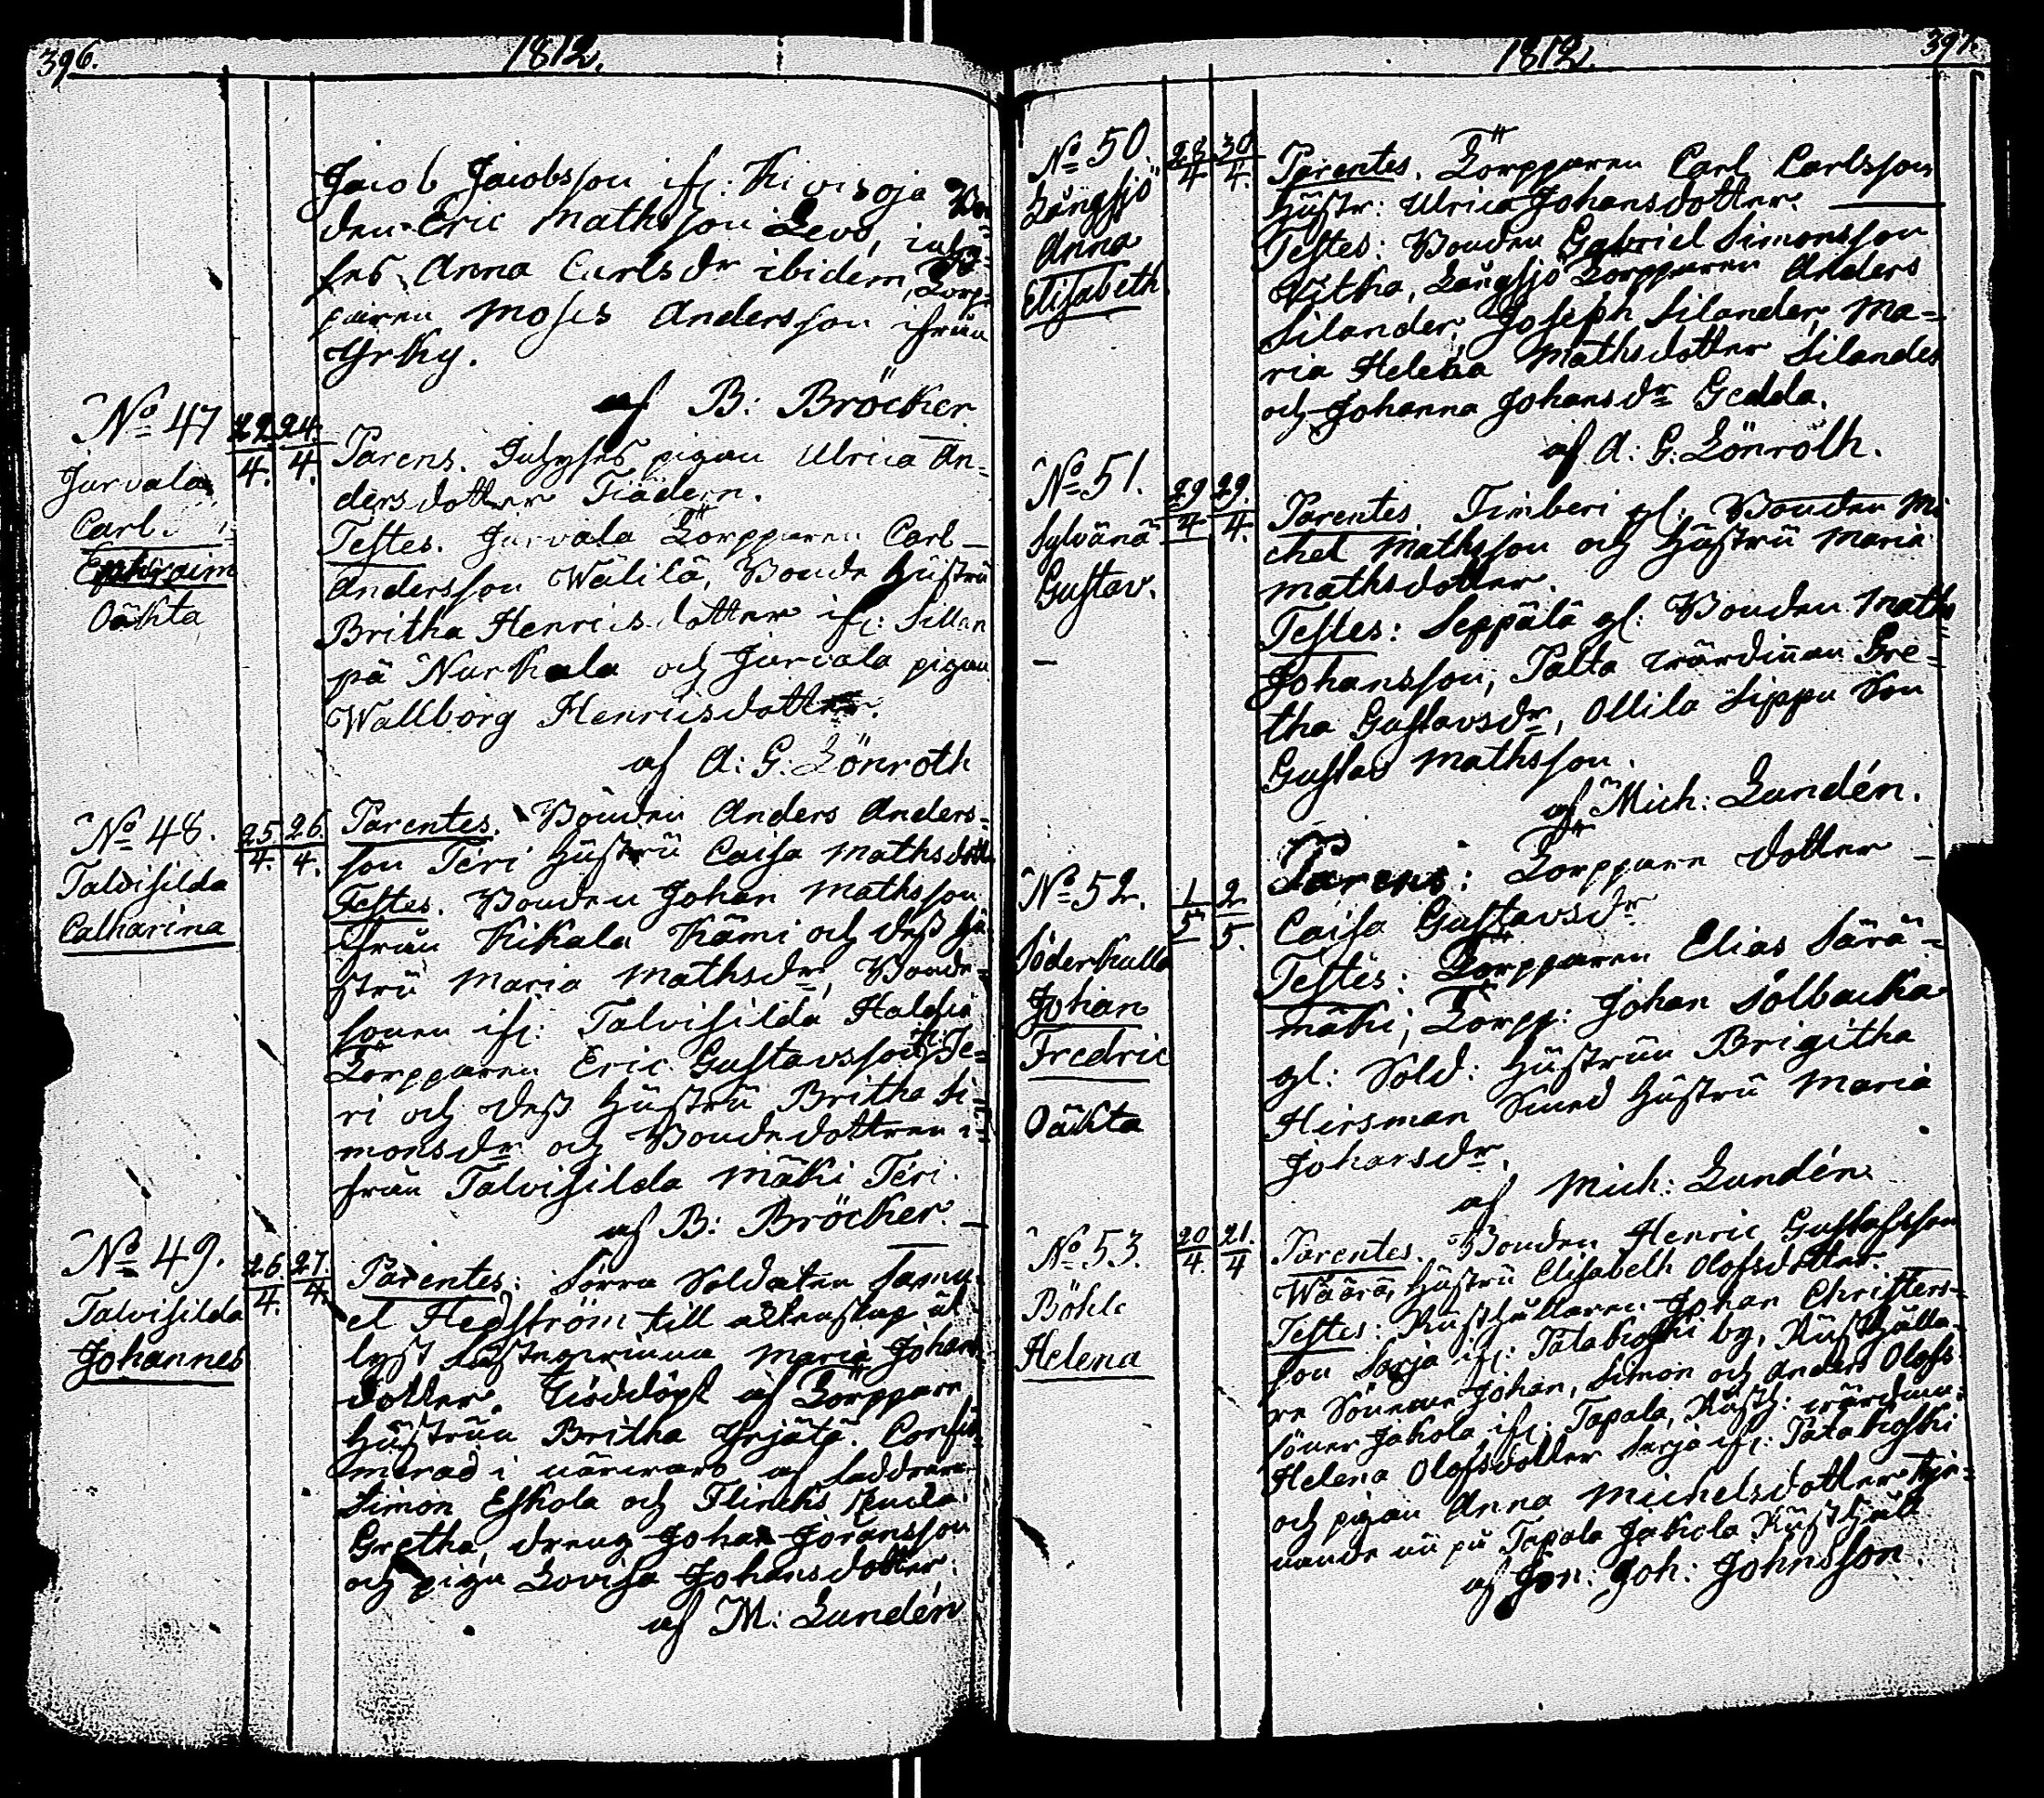 396.
1812.
Jacob Jacobsson ifr: Kivisoja Bon-
den Eric Mathsson Levo, inhy-
ses Anna Carlsdr ibidem, Torp-
paren Moses Andersson ifrån
Yrky.
af B: Bröcker
No 47
Jurvala
Carl
Ephraim
Oäkta
22/4. 24/4.
Parens. Inhyses pigan Ulrica An-
dersdotter Tiädern.
Testes. Jurvala Torpparen Carl
Andersson Wälilä, Bonde Hustru
Britha Henricsdotter ifr: Sillan
på Nurkala och Jurvala pigan
Wallborg Henricsdotter.
af A: G: Lönroth
No 48.
Talvisilda
Catharina
25/4. 26/4.
Parentes. Bonden Anders Anders-
son Teri Hustru Caisa Mathsdotter
Testes. Bonden Johan Mathsson
ifrån Kikala Kämi och dess Hu-
stru Maria Mathsdr, Bonde-
sonen ifr: Talvisilda
Torpparen Eric Gustavsson ifr: Te-
ri och dess Hustru Britha Si-
monsdr och Bondedottren i-
från Talvisilda Mäki Teri.
af B: Bröcker.
No 49.
Talvisilda
Johannes
26/4. 27./4.
Parentes: Sorra Soldaten Samu-
el Hedström till äktenskap ut-
lyst Maria Johans-
dotter. Nöddöpt af Torppare
Hustrun Britha Yrjätä. Confir-
merad i närvaro af faddrarne
Simon Eskola och Flincks Enka
Gretha, dreng Johan Joransson
och piga Lovisa Johansdotter.
af M: Lundén
1812.
397.
No 50.
Långsjö
Anna
Elisabeth
28/4 30/4.
Parentes. Torpparen Carl Carlsson
Hustr: Ulrica Johansdotter.
Testes: Bonden Gabriel Simonsson
Vitka, Långsjö Torpparen Anders
Silander, Joseph Silander, Ma-
ria Helena Mathsdotter Silander
och Johanna Johansdr Gedda.
af A: G: Lönroth.
No 51.
Sylvänä
Gustav.
29/4 29./4.
Parentes. Timberi gl: Bonden Mi-
chel Mathsson och Hustru Maria
Mathsdotter.
Testes: Seppälä gl: Bonden Maths
Johansson, Palta wärdinnan Gre-
tha Gustavsdr, Ollila Sippu Son
Gustav Mathsson.
af Mich: Lundén.
No 52.
Söderkulla
Johan
Fredric
Oäkta
1/5 2/5.
Parens: Torppare dotter
Caisa Gustavsdr
Testes: Torpparen Elias Särä-
mäki, Torpp: Johan Solbacka
gl: Sold: Hustrun Brigitha
Hirsman Smed Hustru Maria
Johansdr.
af Mich: Lundén.
No 53.
Böhle
Helena
20/4. 21./4
Parentes. Bonden Henric Gustafsson
Wäärä, Hustru Elisabeth Olofsdotter.
Testes: Rusthållaren Johan Christers-
son Sarja ifr: Patakoski by, Rusthålla-
re Sönerne Johan, Simon och Anders Olofs-
söner Jakola ifr: Tapala, Rusth: wärdinn-
Helena Olofsdotter Sarja ifr: Patakoski
och pigan Anna Michelsdotter tje-
nande nu på Tapala Jakola Rusthåll
af Jon: Joh: Johnsson.